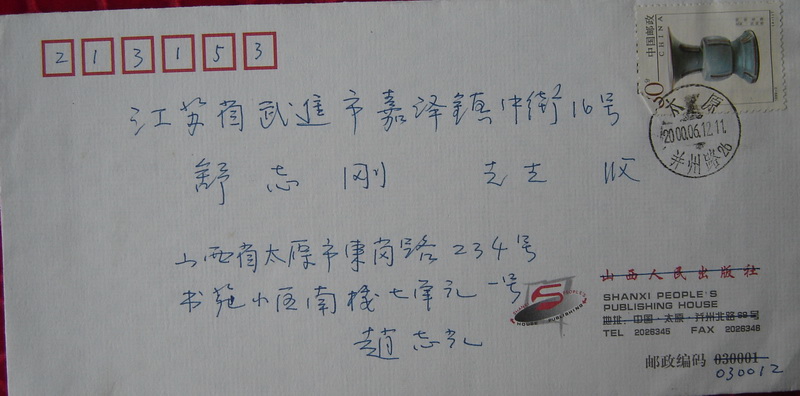 213153
中国邮政
CHINA
江苏省武進市嘉泽鎮中街16号
舒志刚 先生 收
太原
2000.06.12.11
并州路
山西省太原市東岗路234号
书苑小区南楼七单元一号
趙志光
山西人民出版社
SHANXI PEOPLE'S
PUBLISHING HOUSE
地址：中国·太原·并州北路69号
TEL 2026345 FAX 2026348
邮政编码 030001
030012